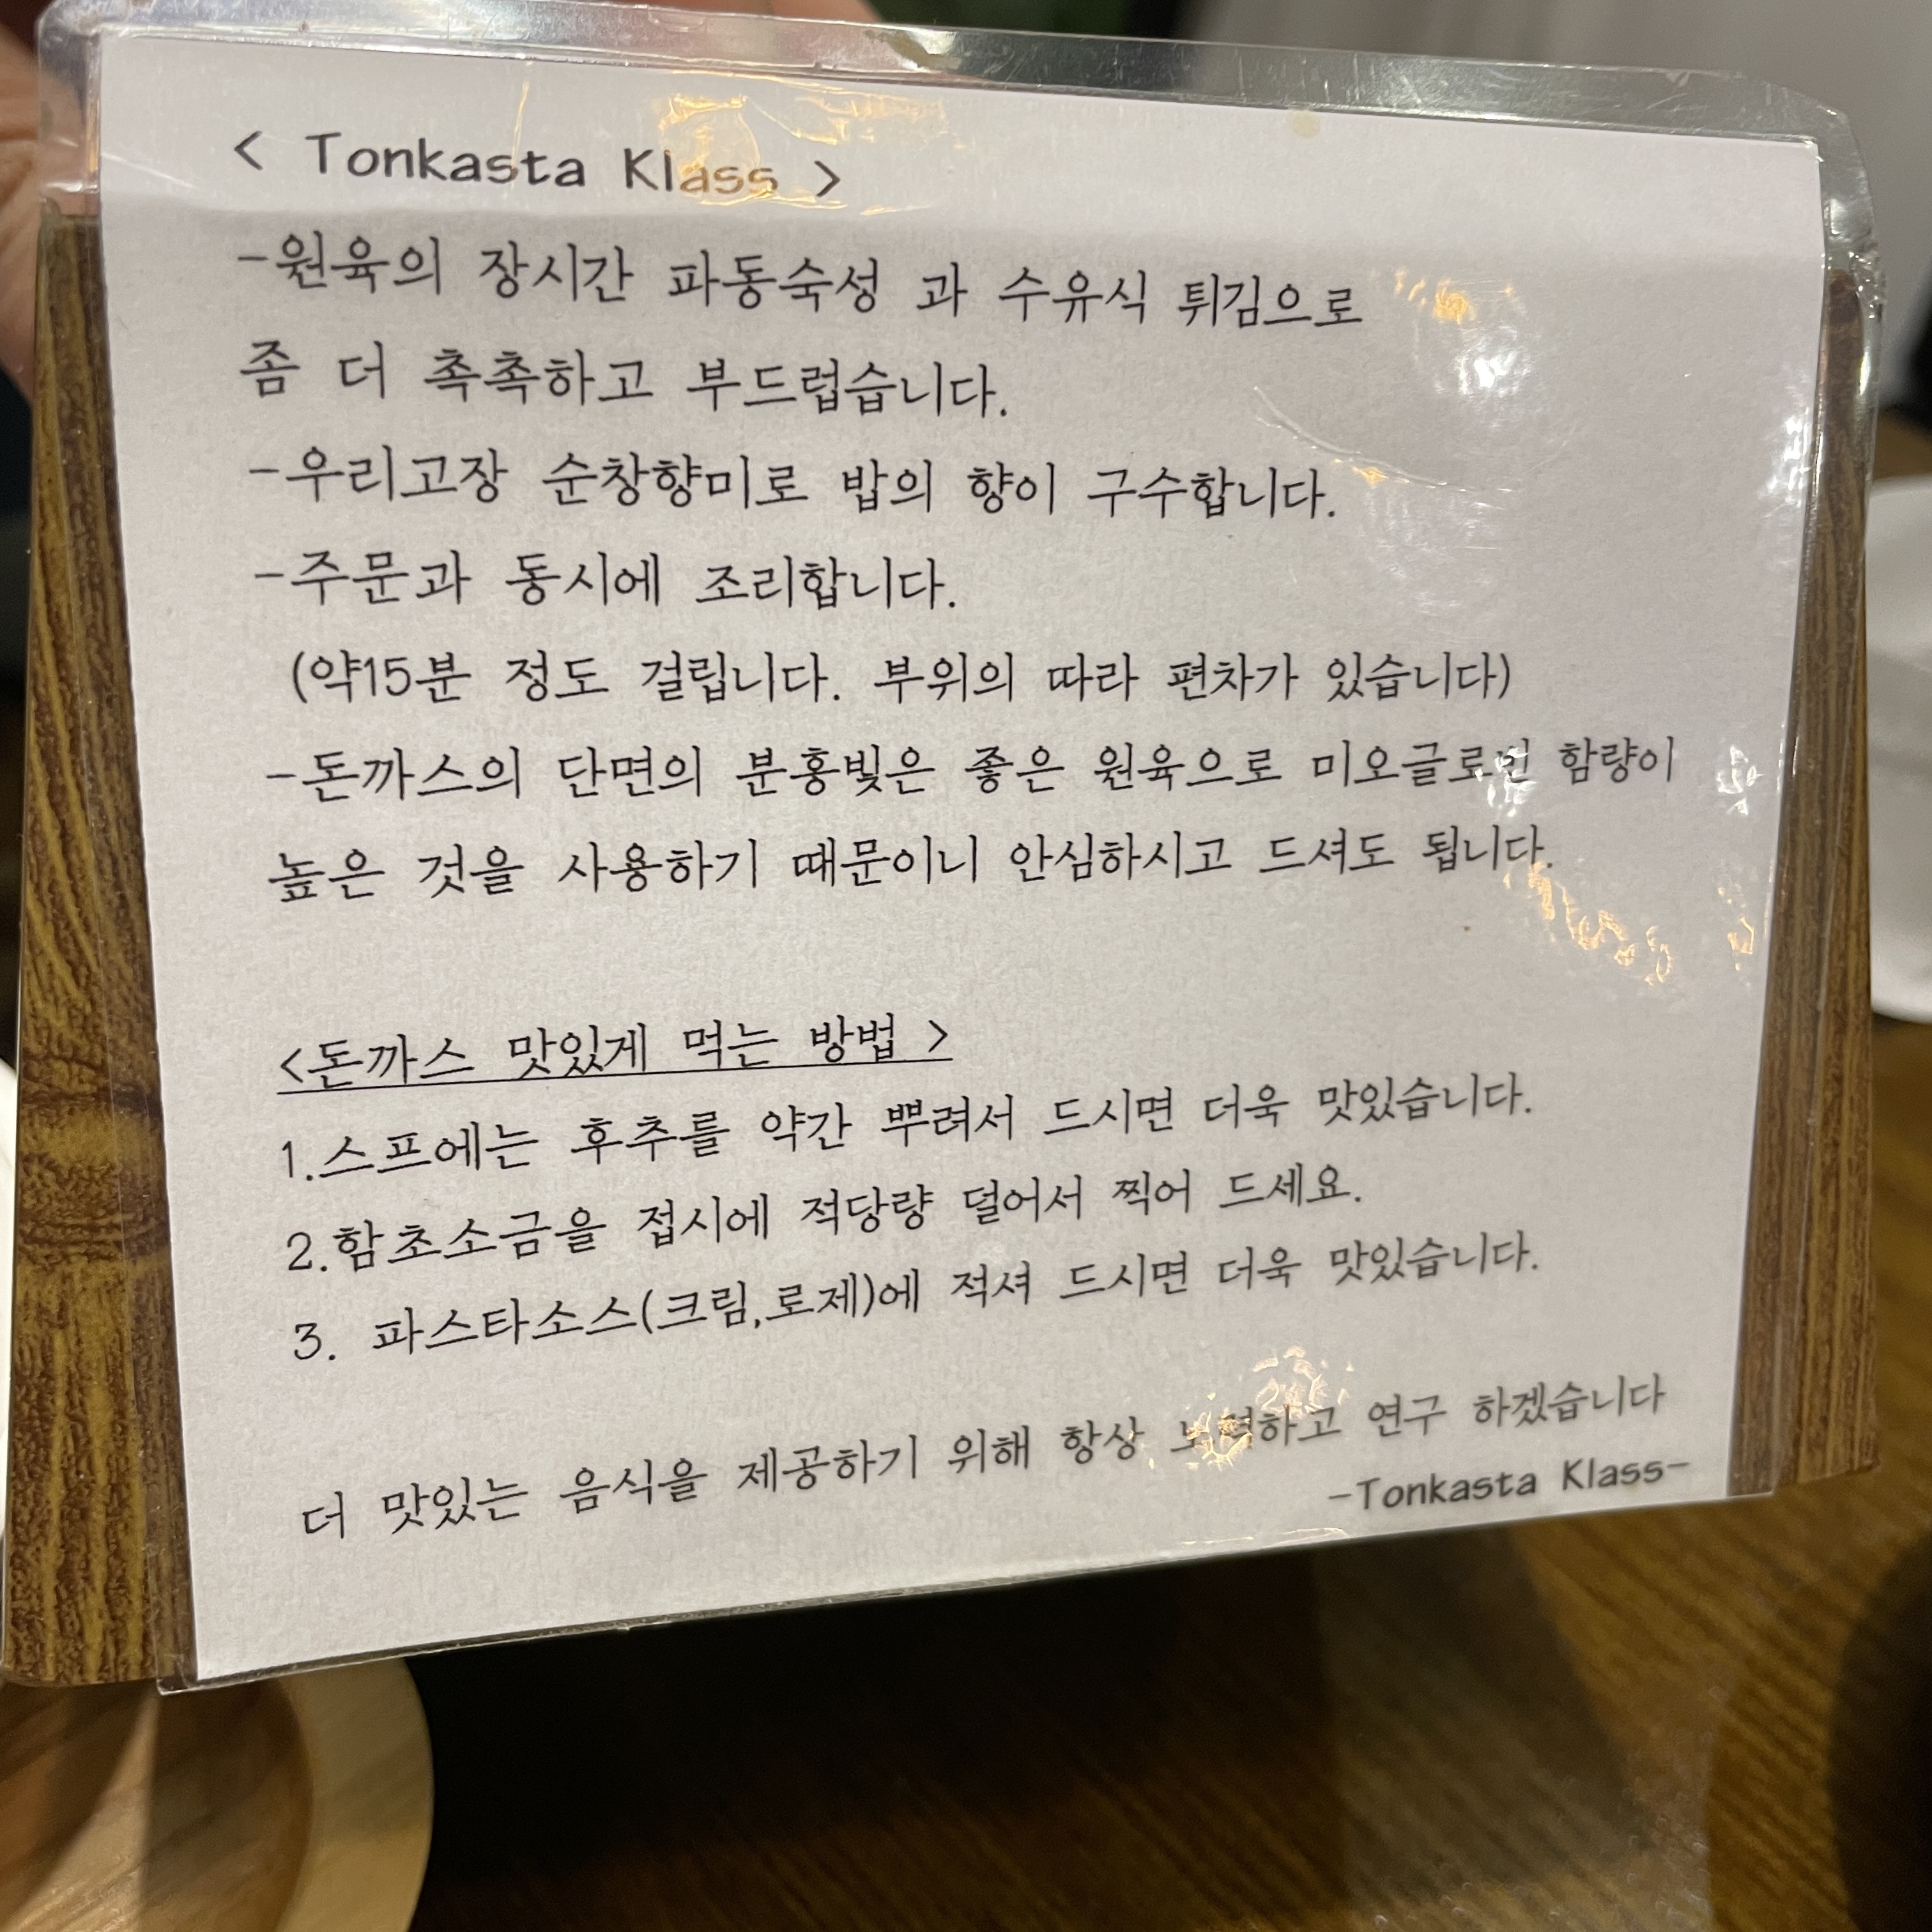 < Tonkasta Klass >
-원육의 장시간 파동숙성 과 수유식 튀김으로
좀 더 촉촉하고 부드럽습니다.
-우리고장 순창향미로 밥의 향이 구수합니다.
-주문과 동시에 조리합니다.
(약15분 정도 걸립니다. 부위의 따라 편차가 있습니다)
-돈까스의 단면의 분홍빛은 좋은 원육으로 미오글로빈 함량이
높은 것을 사용하기 때문이니 안심하시고 드셔도 됩니다.
<돈까스 맛있게 먹는 방법 >
1.스프에는 후추를 약간 뿌려서 드시면 더욱 맛있습니다.
2.함초소금을 접시에 적당량 덜어서 찍어 드세요.
3. 파스타소스(크림,로제)에 적셔 드시면 더욱 맛있습니다.
더 맛있는 음식을 제공하기 위해 항상 노력하고 연구 하겠습니다
-Tonkasta Klass-